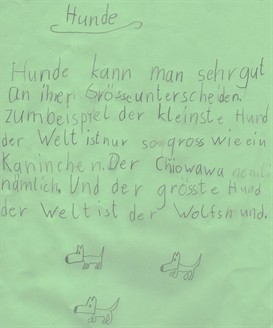 Hunde
Hunde kann man sehr gut
an ihrer Grösse unterscheiden.
zumbeispiel der kleinste Hund
der Welt ist nur so gross wie ein
Kaninchen. Der Chiowawa
nämlich. Und der grösste Hund
der Welt ist der Wolfshund.